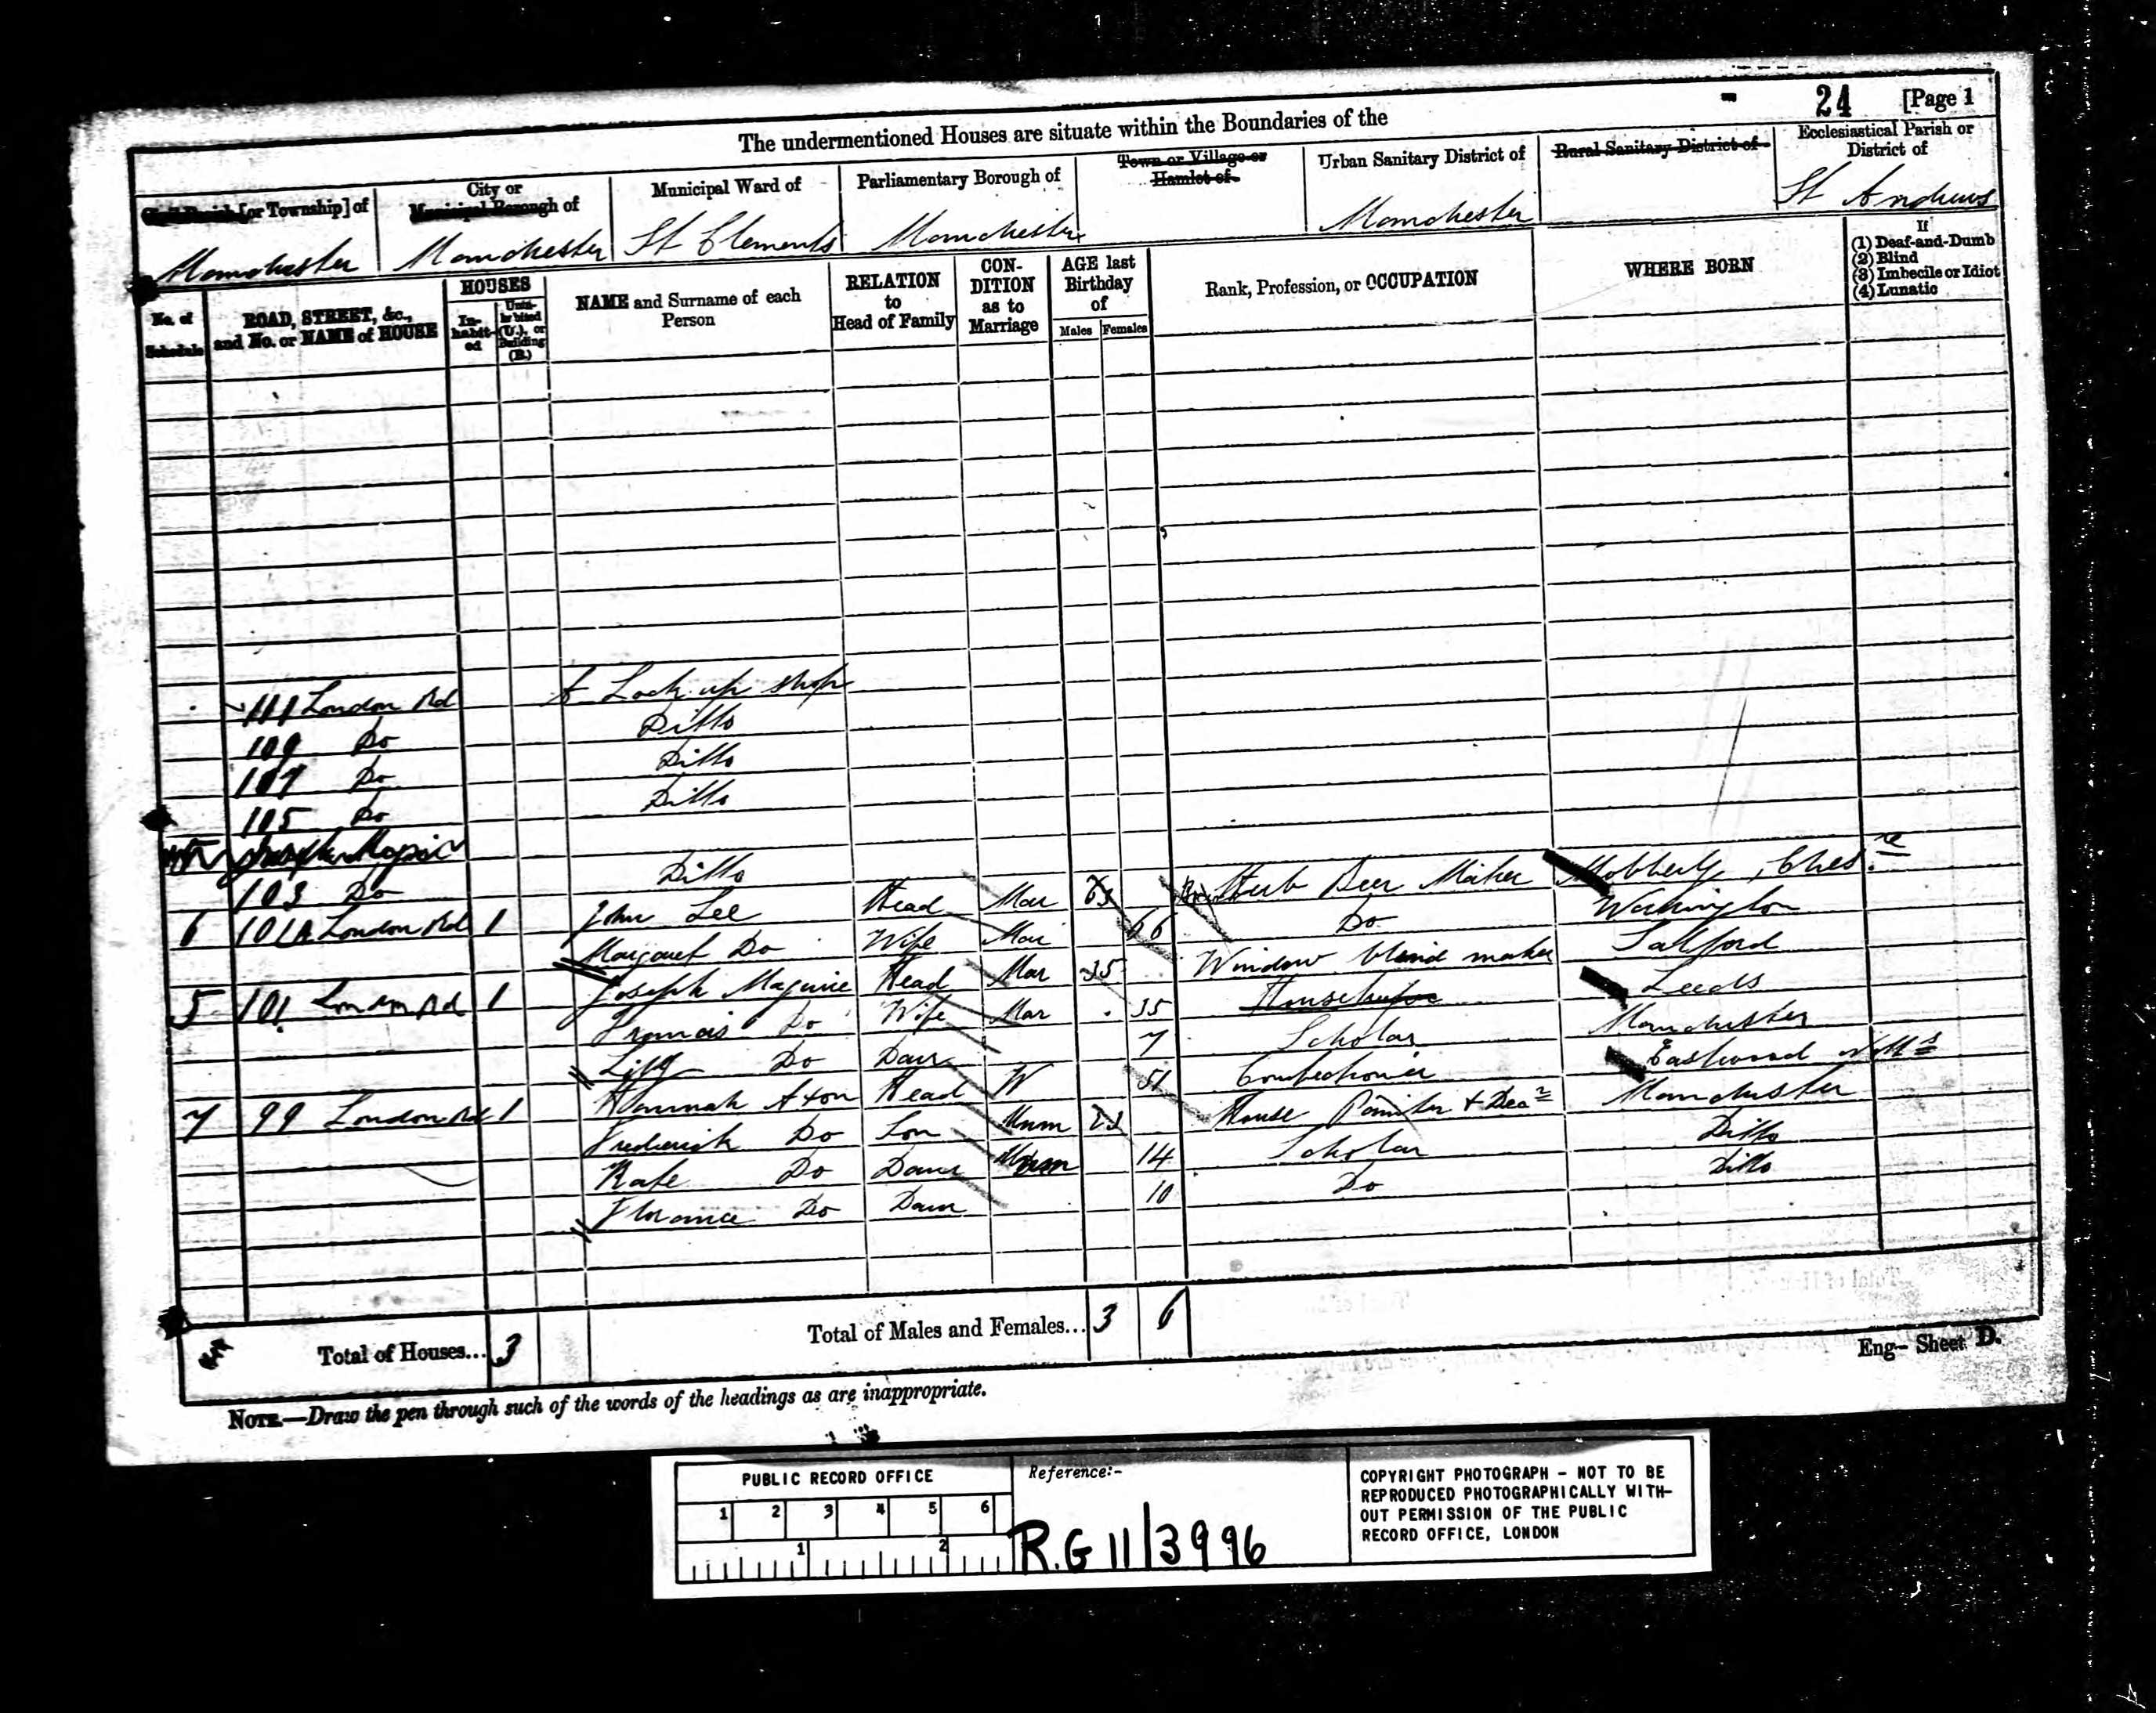 24 [Page 1
The undermentioned Houses are situate within the Boundaries of the
Civil Parish [or Township] of
City or Municipal Borough of
Municipal Ward of
Parliamentary Borough of
Town or Village or Hamlet of
Urban Sanitary District of
Rural Sanitary District of
Ecclesiastical Parish or District of
Manchester Manchester St Clements Manchester Manchester St Andrews
No. of Schedule
ROAD, STREET, &c., and No. or NAME of HOUSE
HOUSES
In-habit-ed
Unin-habited (U.), or Building (B.)
NAME and Surname of each Person
RELATION to Head of Family
CON-DITION as to Marriage
AGE last Birthday of
Males Females
Rank, Profession, or OCCUPATION
WHERE BORN
If
(1) Deaf-and-Dumb
(2) Blind
(3) Imbecile or Idiot
(4) Lunatic
111 London Rd A Lock up shop
109 Do Ditto
107 Do Ditto
105 Do Ditto
103 Do Ditto
6 101A London Rd 1 John Lee Head Mar 63 Herb Beer Maker Mobberly, Ches.re
Margaret Do Wife Mar 66 Do Warrington
5 101 London Rd 1 Joseph Maguire Head Mar 35 Window blind maker Salford
Francis Do Wife Mar 35 Leeds
Lilly Do Daur 7 Scholar Manchester
7 99 London Rd 1 Hannah Axon Head W 51 Confectioner Eastwood Notts
Frederick Do Son Unm 23 House Painter & Dec Manchester
Kate Do Daur Unm 14 Scholar Ditto
Florance Do Daur 10 Do Ditto
Total of Houses... 3 Total of Males and Females... 3 6
Eng- Sheet D.
NOTE.—Draw the pen through such of the words of the headings as are inappropriate.
PUBLIC RECORD OFFICE
1 2 3 4 5 6
1 2
Reference:-
R.G 11/3996
COPYRIGHT PHOTOGRAPH - NOT TO BE
REPRODUCED PHOTOGRAPHICALLY WITH-
OUT PERMISSION OF THE PUBLIC
RECORD OFFICE, LONDON